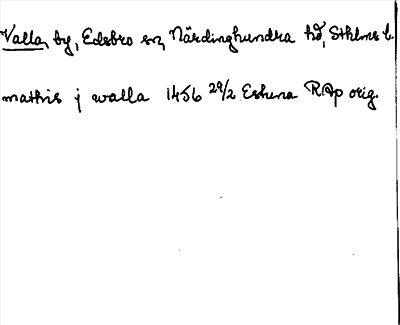 Valla, by, Edsbro sn, Närdinghundra hd, Sthlms l.
mathis j walla 1456 29/2 Estuna RAp orig.